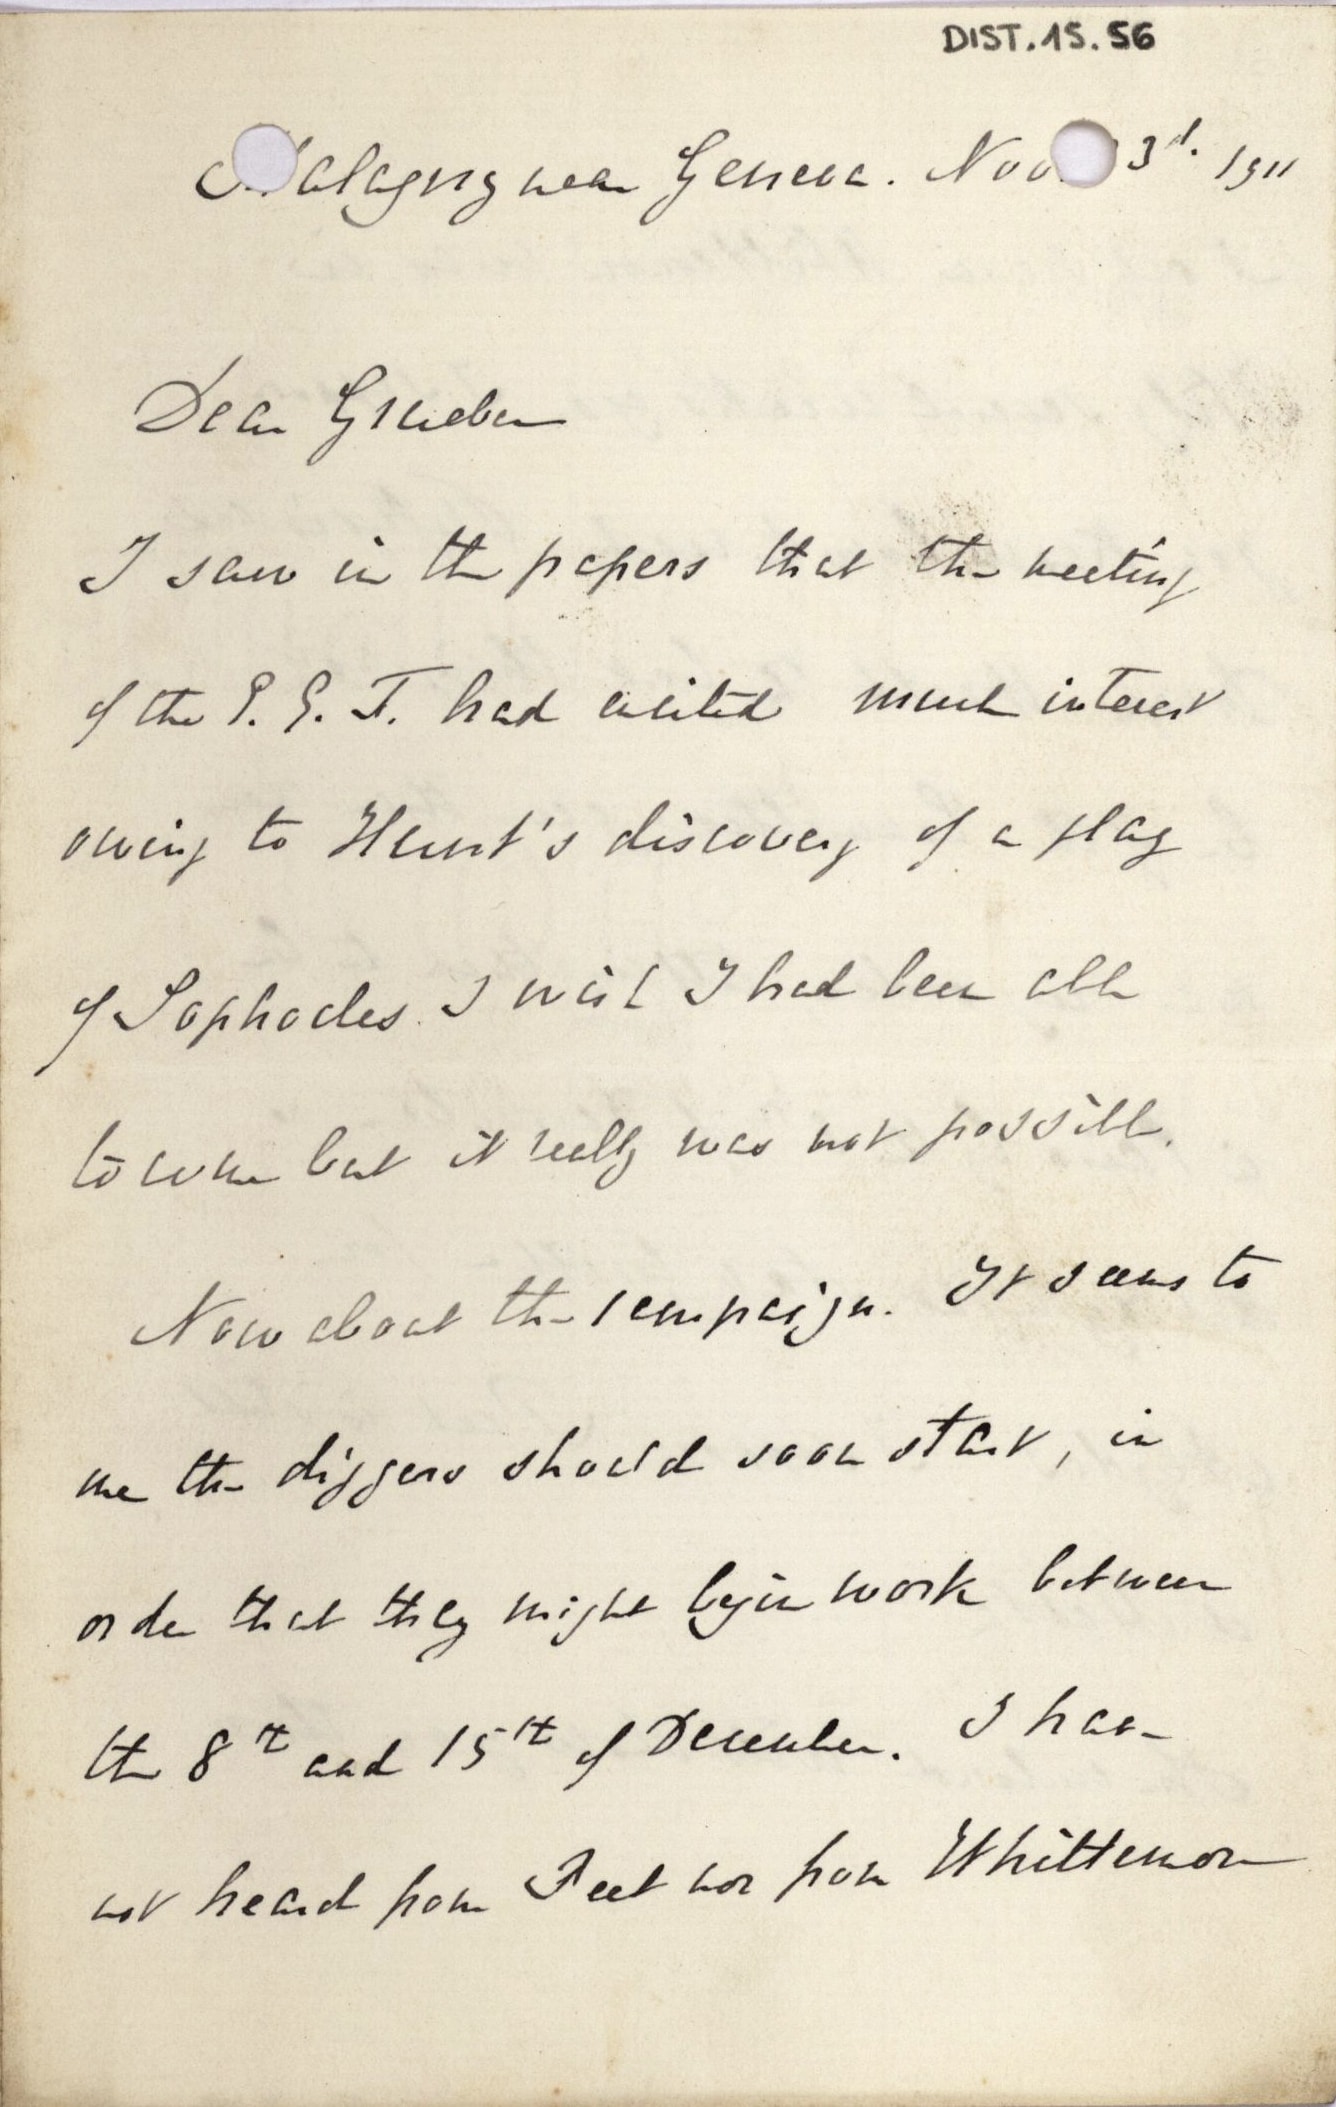 DIST.15.56
Malagny near Geneva. Nov. 3d. 1911
Dear Grueber
I saw in the papers that the meeting
of the E. E. F. had excited much interest
owing to Hunt's discovery of a play
of Sophocles. I wish I had been able
to come but it really was not possible.
Now about the campaign. It seems to
me the diggers should soon start, in
order that they might begin work between
the 8th and 15th of December. I have
not heard from Peet nor from Whittemore